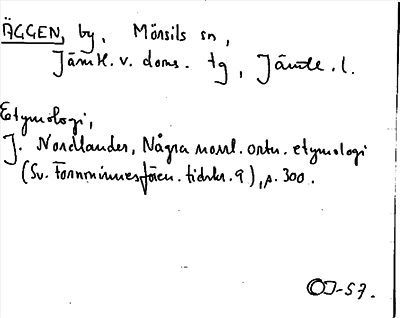 ÄGGEN, by, Mörsils sn,
Jämtl. v. doms. tg, Jämtl. l.
Etymologi,
J. Nordlander, Några norrl. ortn. etymologi
(Sv. Fornminnesfören. tidskr. 9), s. 300.
OJ-57.